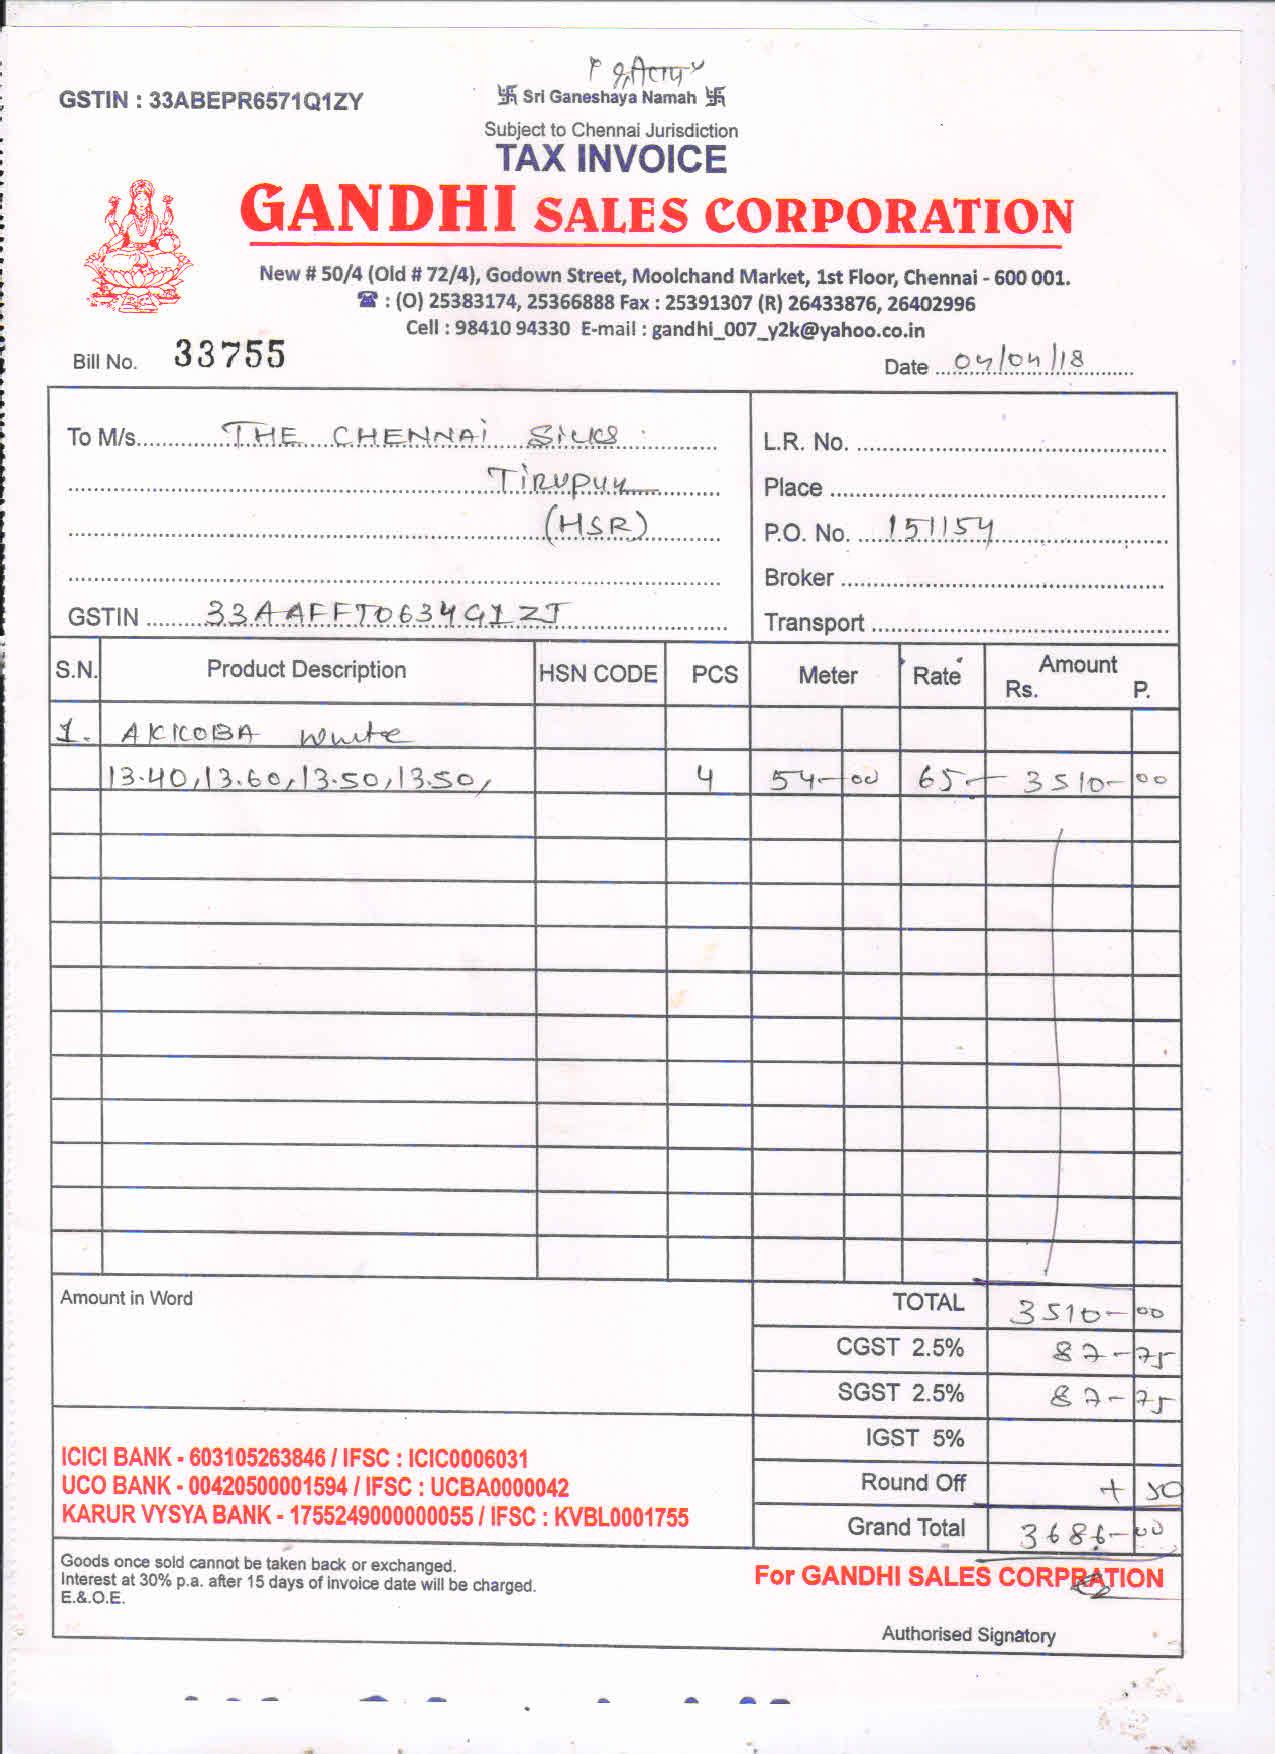 GSTIN : 33ABEPR6571Q1ZY
卐 Sri Ganeshaya Namah 卐
Subject to Chennai Jurisdiction
TAX INVOICE
GANDHI SALES CORPORATION
New # 50/4 (Old # 72/4), Godown Street, Moolchand Market, 1st Floor, Chennai - 600 001.
☎ : (O) 25383174, 25366888 Fax : 25391307 (R) 26433876, 26402996
Cell : 98410 94330 E-mail : gandhi_007_y2k@yahoo.co.in
Bill No. 33755
Date 04/04/18
To M/s. THE CHENNAI SILKS
Tirupur
(HSR)
GSTIN 33AAFFT0634G1ZJ
L.R. No.
Place
P.O. No. 151154
Broker
Transport
S.N. Product Description HSN CODE PCS Meter Rate Amount
Rs. P.
1. AKKOBA White
13.40, 13.60, 13.50, 13.50, 4 54-00 65- 3510-00
Amount in Word
TOTAL 3510-00
CGST 2.5% 87-75
SGST 2.5% 87-75
IGST 5%
Round Off + 50
Grand Total 3686-00
ICICI BANK - 603105263846 / IFSC : ICIC0006031
UCO BANK - 00420500001594 / IFSC : UCBA0000042
KARUR VYSYA BANK - 1755249000000055 / IFSC : KVBL0001755
Goods once sold cannot be taken back or exchanged.
Interest at 30% p.a. after 15 days of invoice date will be charged.
E.&.O.E.
For GANDHI SALES CORPRATION
Authorised Signatory